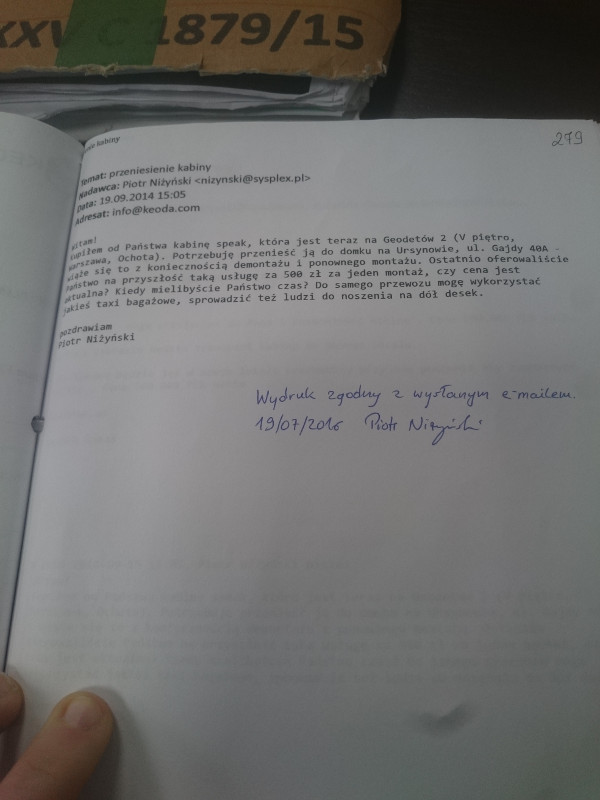 XXV C 1879/15
279
kabiny
Temat: przeniesienie kabiny
Nadawca: Piotr Niżyński <nizynski@sysplex.pl>
Data: 19.09.2014 15:05
Adresat: info@keoda.com
Witam!
Kupiłem od Państwa kabinę speak, która jest teraz na Geodetów 2 (V piętro,
Warszawa, Ochota). Potrzebuję przenieść ją do domku na Ursynowie, ul. Gajdy 40A -
wiąże się to z koniecznością demontażu i ponownego montażu. Ostatnio oferowaliście
Państwo na przyszłość taką usługę za 500 zł za jeden montaż, czy cena jest
aktualna? Kiedy mielibyście Państwo czas? Do samego przewozu mogę wykorzystać
jakieś taxi bagażowe, sprowadzić też ludzi do noszenia na dół desek.
pozdrawiam
Piotr Niżyński
Wydruk zgodny z wysłanym e-mailem.
19/07/2016 Piotr Niżyński